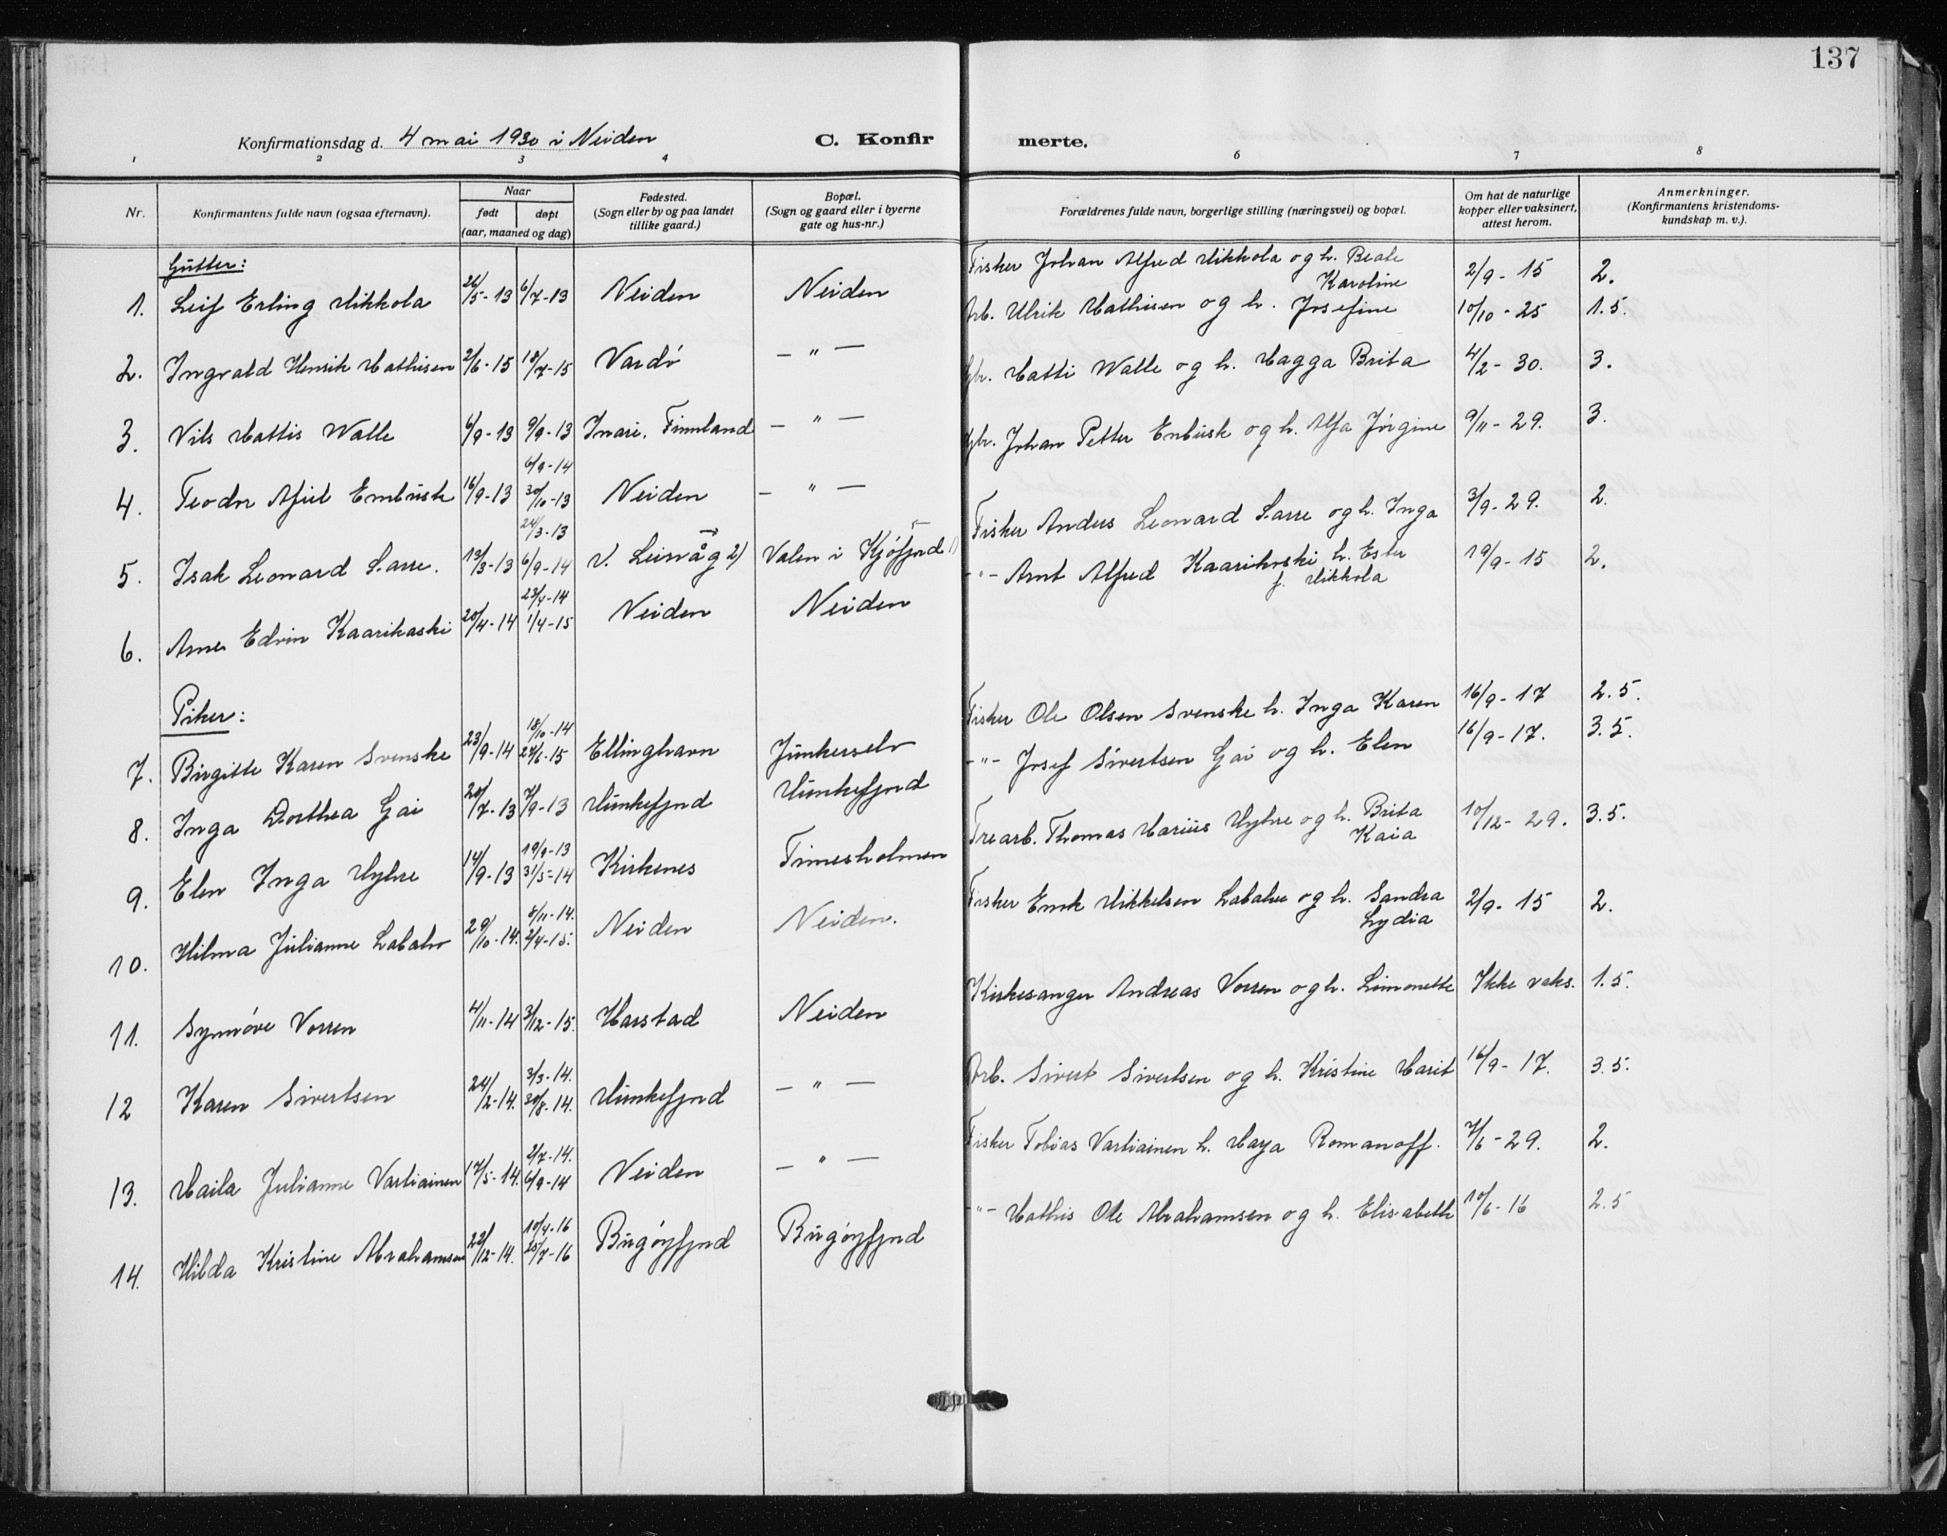 137
Konfirmationsdag d. 4 mai 1930 i Neiden C. Konfir merte.
1 2 3 4 6 7 8
Nr. Konfirmantens fulde navn (ogsaa efternavn). Naar født døpt (aar, maaned og dag) Fødested. (Sogn eller by og paa landet tillike gaard.) Bopæl. (Sogn og gaard eller i byerne gate og hus-nr.) Forældrenes fulde navn, borgerlige stilling (næringsvei) og bopæl. Om hat de naturlige kopper eller vaksinert, attest herom. Anmerkninger. (Konfirmantens kristendoms-kundskap m. v.).
Gutter:
1. Leif Erling Mikkola 26/5-13 6/7-13 Neiden Neiden Fisker Johan Alfred Mikkola og h. Beate Karoline 2/9-15 2.
2. Ingvald Henrik Mathisen 2/6-15 18/7-15 Vardö — " — Arb. Ulrik Mathisen og h. Josefine 10/10-25 1.5.
3. Nils Mattis Walle 6/9-13 9/9-13 Inari, Finnland — " — Gbr. Matti Walle og h. Magga Brita 4/2-30. 3.
4. Teodor Afiel Embusk 16/9-13 6/9-14 30/10-13 Neiden — " — Gbr. Johan Petter Enbusk og h. Alfa Jörgine 9/11-29. 3.
5. Isak Leonard Sarre. 13/3-13 24/3-13 6/9-14 V. Leirvåg 2) Valen i Kjöfjord 1) Fisker Anders Leonard Sarre og h. Inga 3/9-29. 2.
6. Arne Edvin Kaarikoski 20/4-14 23/4-14 1/4-15 Neiden Neiden - " - Arnt Alfred Kaarikoski h. Ester f. Mikkola 19/9-15 2.
Piker:
7. Birgitte Karen Svenske 23/9-14 18/10-14 24/6-15 Ellinghavn Junkerselv Fisker Ole Olsen Svenske h. Inga Karen 16/9-17 2.5.
8. Inga Dorthea Gai 20/7-13 7/9-13 Munkefjord Munkefjord - " - Josef Sivertsen Gai og h. Elen 16/9-17. 3.5.
9. Elen Inga Myhre 14/9-13 19/9-13 31/5-14 Kirkenes Finnesholmen Trearb. Thomas Marius Myhre og h. Brita Kaia 10/12-29. 3.5.
10. Hilma Julianne Labahr 29/10-14. 8/11-14. 2/4-15. Neiden Neiden. Fisker Emk Mikkelsen Labahr og h. Sandra Lydia 2/9-15 2.
11. Synnöve Vorren 4/11-14 3/12-15. Harstad Neiden Kirkesanger Andreas Vorren og h. Simonette Ikke vaks. 1.5.
12 Karen Sivertsen 24/2-14. 3/3-14. 30/8-14. Munkefjord — " — Arb. Sivert Sivertsen og h. Kristine Marit 16/9-17. 3.5.
13. Maila Julianne Vartiainen 17/5-14. 2/7-14. 6/9-14 Neiden — " — Fisker Tobias Vartiainen h. Maya Romanoff. 7/6-29. 2.
14. Hilda Kristine Abrahamsen 22/12-14. 10/4-16 25/7-16 Bugöyfjord Bugöyfjord - " - Mathis Ole Abrahamsen og h. Elisabeth 10/6-16 2.5